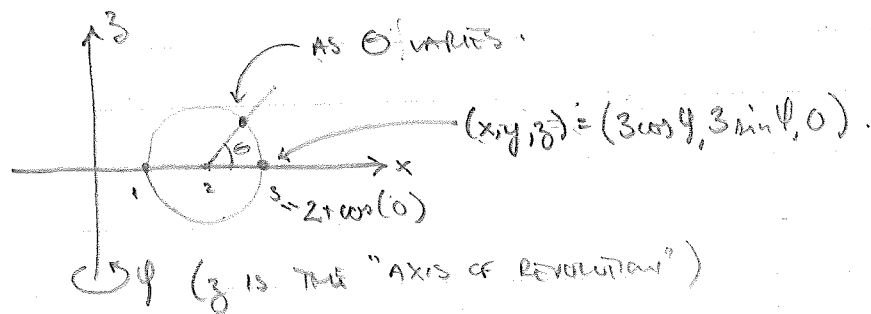 z
AS θ VARIES.
(x,y,z) = (3cosφ, 3sinφ, 0).
θ
x
1 2 3 = 2+cos(0)
φ (z IS THE "AXIS OF REVOLUTION")